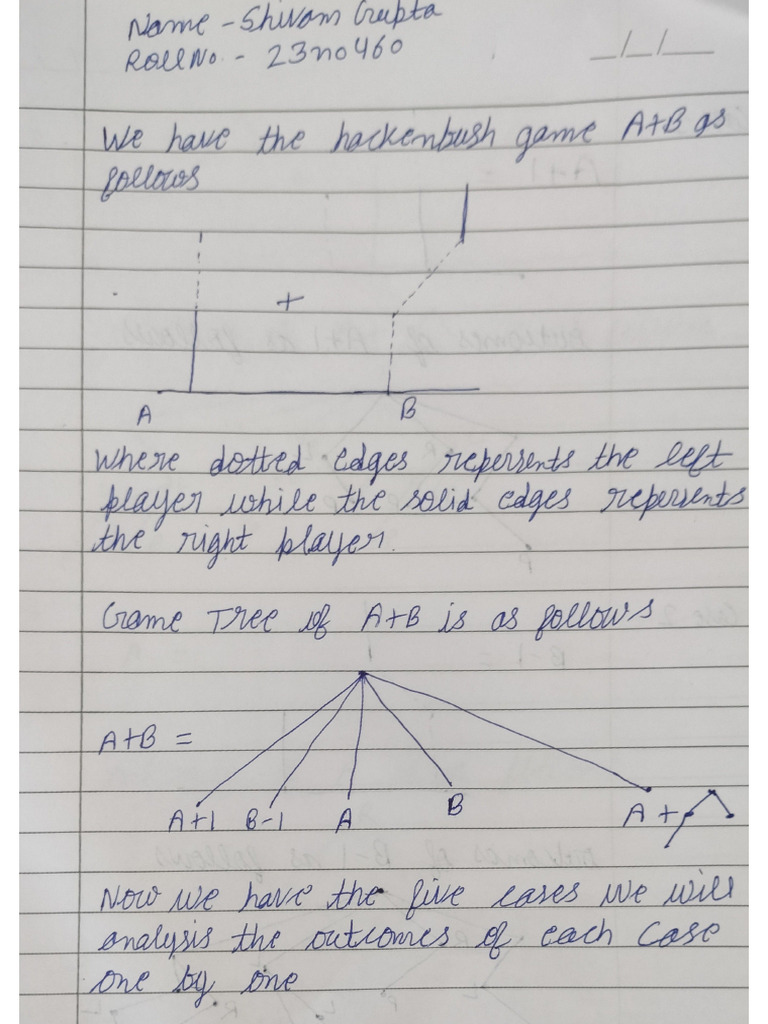 Name - Shivam Gupta
Roll No. - 23n0460
_/_/_
We have the hackenbush game A+B as
follows
+
A B
Where dotted edges repersents the left
player while the solid edges repersents
the right player.
Game Tree of A+B is as follows
A+B =
A+1 B-1 A B A +
Now we have the five cases we will
analysis the outcomes of each case
one by one